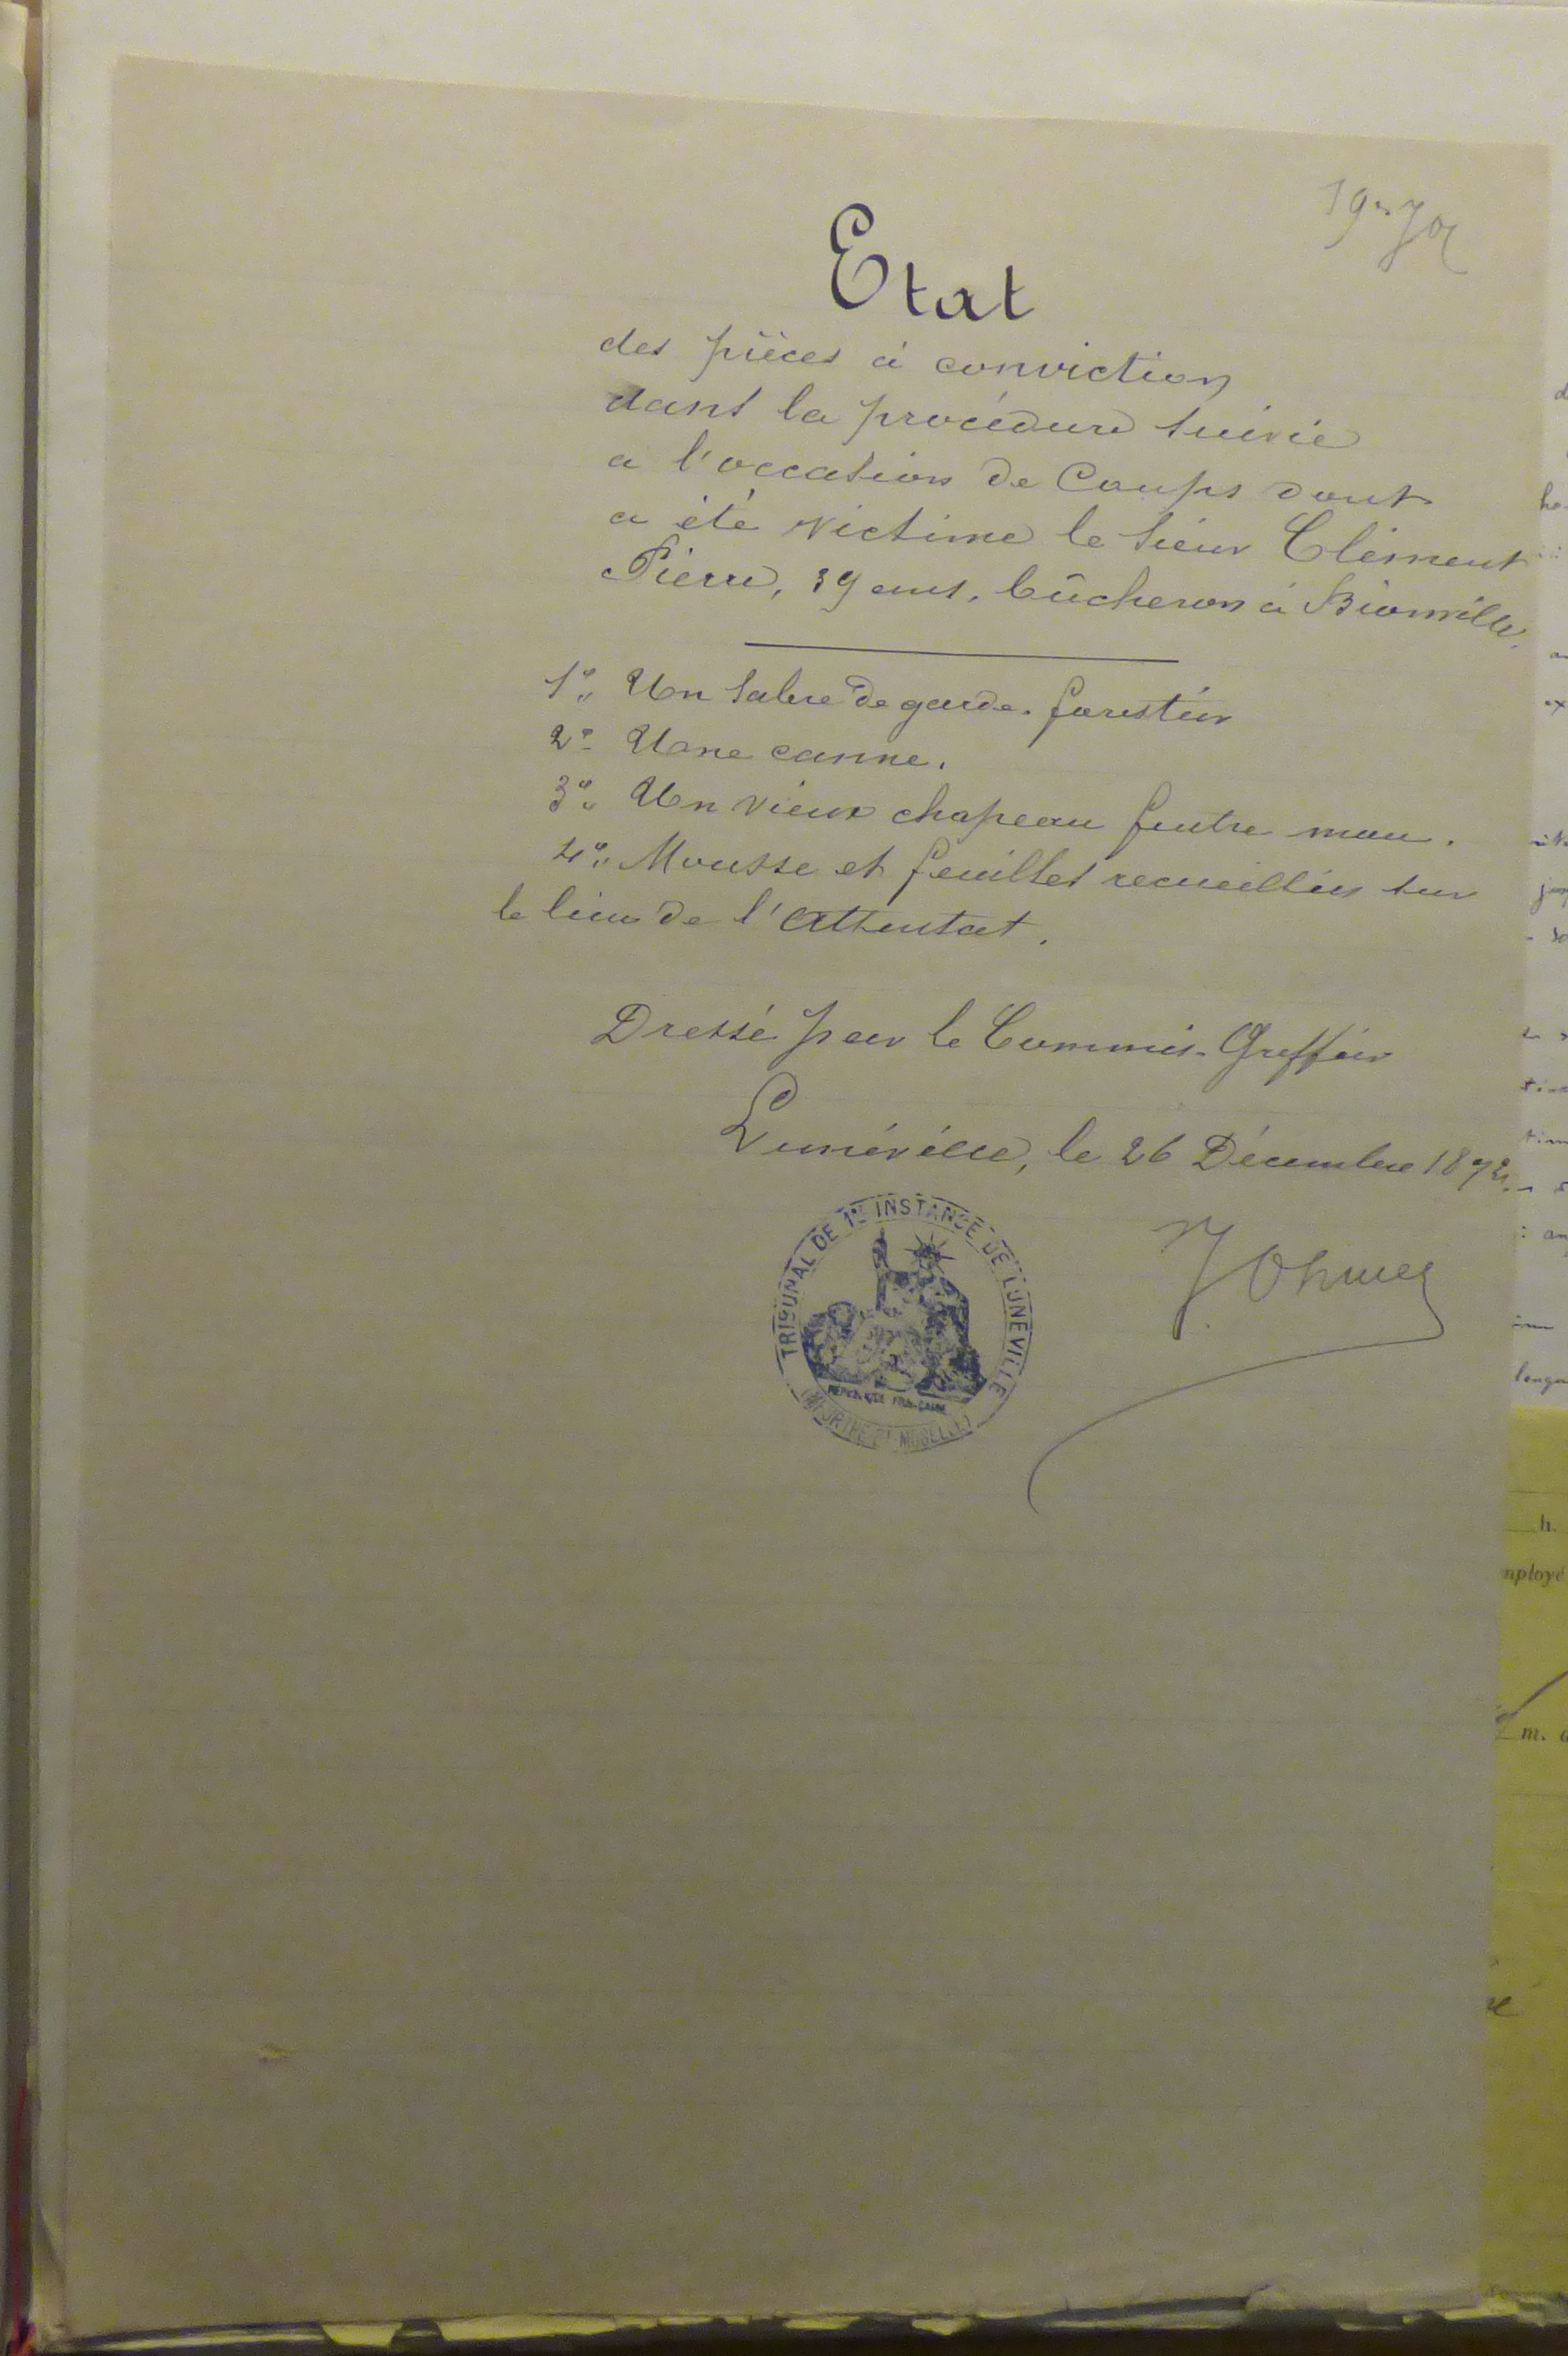 Etat
des pièces à conviction
dans la procédure suivie
a l'occasion de Coups dont
a été victime le sieur Clément
Pierre, 39 ans, bûcheron à Bionville.
1° Un sabre de garde-forestier
2° Une canne.
3° Un vieux chapeau feutre mou.
4° Mousse et feuilles recueillies sur
le lieu de l'Attentat.
Dressé par le Commis-Greffier
Lunéville, le 26 Décembre
TRIBUNAL DE 1RE INSTANCE DE LUNEVILLE
REPUBLIQUE FRANCAISE
(MEURTHE ET MOSELLE)
h.
m.